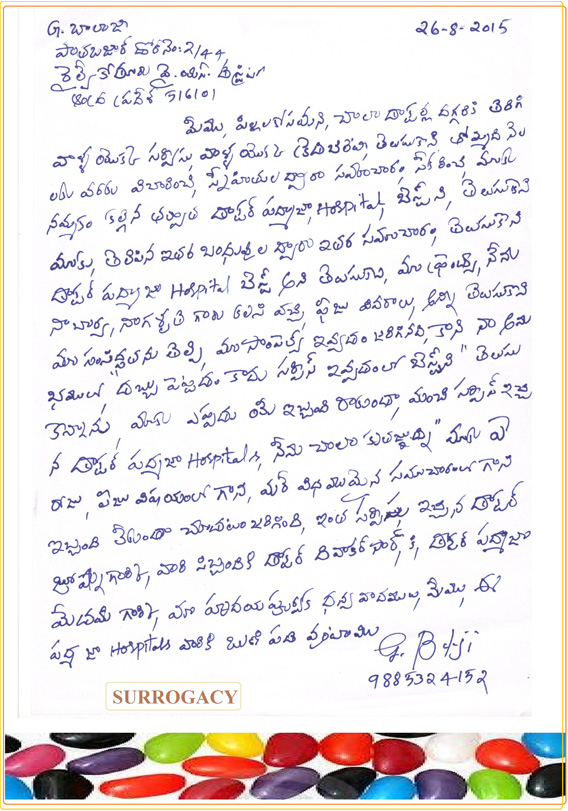 G. బాలాజీ
26-8-2015
పాతబజార్ డోర్ నెం: 2/44
రైల్వే కోడూరు వై.యస్. కడప
ఆంధ్ర ప్రదేశ్ 516101
మేము, పిల్లలకోసమని, చాలా డాక్టర్ల దగ్గరికి తిరిగి
వాళ్ళ యొక్క సర్వీసు, వాళ్ళ యొక్క తెలుసుకొని నెల
విచారించి, స్నేహితుల ద్వారా సమాచారం, సేకరించి, మాకు
నమ్మకం కల్గిన తర్వాత డాక్టర్ పద్మాజా, Hospital, బెస్ట్ ని, తెలుసుకొని
మాకు, తెలిసిన ఇతర బంధువుల ద్వారా ఇతర సమాచారం, తెలుసుకొని
డాక్టర్ పద్మాజా Hospital బెస్ట్ అని తెలుసుకొని, మా ఫ్రెండ్స్, నేను
నా భార్య, గారు కలిసి వచ్చి ఫీజు వివరాలు, అన్ని తెలుసుకొని
మా తెల్పి, మా ఇవ్వడం జరిగినది, కాని నా అను
భవములో "డబ్బు పెట్టడం కాదు సర్వీస్ ఇవ్వడంలో బెస్ట్ ని" తెలుసు
కొన్నాను, మాకు ఎప్పుడు ఇబ్బంది రాకుండా, మంచి సర్వీస్ ఇచ్చి
న డాక్టర్ పద్మజా Hospitals, నేను చాలా కృతజ్ఞుడ్ని" మాకు ఏ
రోజు, ఫీజు విషయంలో గాని, మరే విధమైన సమాచారంలో గాని
ఇబ్బంది లేకుండా చూడటం జరిగినది, ఇంత సర్వీసు, ఇచ్చిన డాక్టర్
గారికి, వారి సిబ్బందికి డాక్టర్ దివాకర్ కి, డాక్టర్ పద్మాజా
మేడమ్ గారికి, మా హృదయ పూర్వక ధన్యవాదములు, మేము, ఈ
పద్మజా Hospitals వారికి ఋణ పడి వుంటాము
G. Balaji
9885324152
SURROGACY